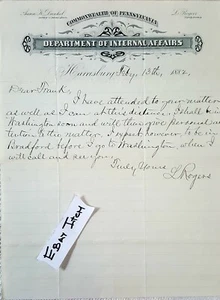 Aaron K. Dunkel
L. Rogers
COMMONWEALTH OF PENNSYLVANIA
DEPARTMENT OF INTERNAL AFFAIRS
Harrisburg, Feby. 13th, 1882.
Dear Frank:
I have attended to your matter
as well as I can at this distance. I shall be in
Washington soon, and will then give personal at-
tention to the matter. I expect, however, to be in
Bradford before I go to Washington, when I
will call and see you.
Truly Yours
L Rogers
EBAY ITCH